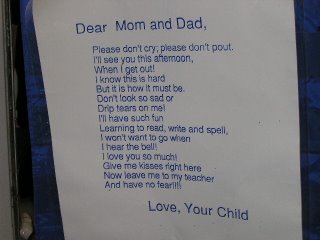 Dear Mom and Dad,
Please don't cry; please don't pout.
I'll see you this afternoon,
When I get out!
I know this is hard
But it is how it must be.
Don't look so sad or
Drip tears on me!
I'll have such fun
Learning to read, write and spell,
I won't want to go when
I hear the bell!
I love you so much!
Give me kisses right here
Now leave me to my teacher
And have no fear!!!!
Love, Your Child